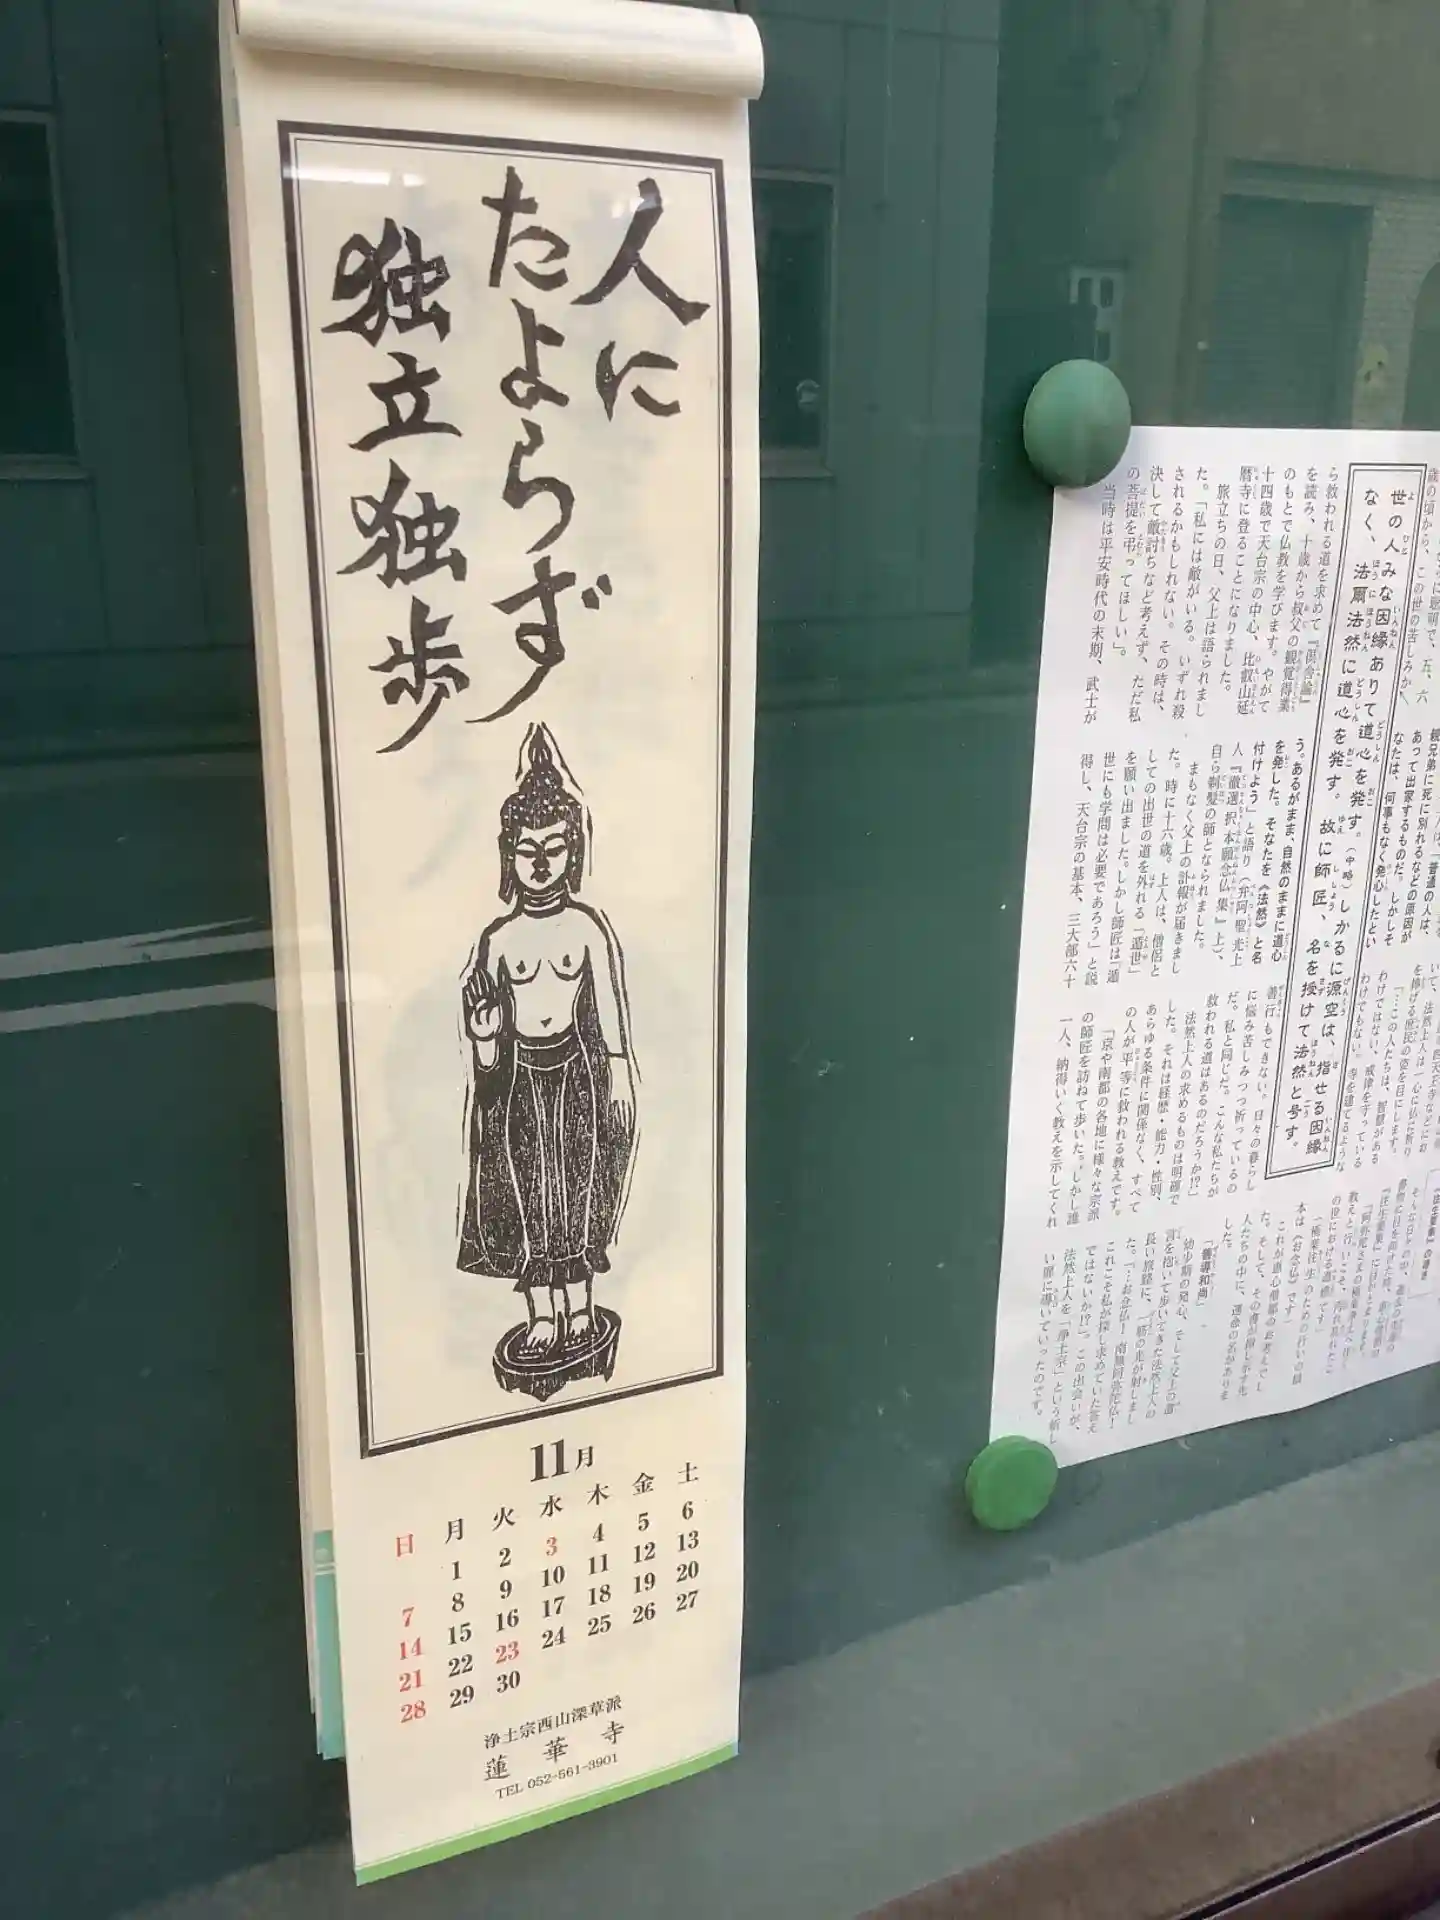 人に
たよらず
独立独歩
11月
日 月 火 水 木 金 土
1 2 3 4 5 6
7 8 9 10 11 12 13
14 15 16 17 18 19 20
21 22 23 24 25 26 27
28 29 30
浄土宗西山深草派
蓮華寺
TEL 052-561-3901
世の人みな因縁ありて道心を発す。(中略)しかるに源空は、指せる因縁
なく、法爾法然に道心を発す。故に師匠、名を授けて法然と号す。
ら救われる道を求めて『倶舎論』
を読み、十歳から叔父の観覚得業
のもとで仏教を学びます。やがて
十四歳で天台宗の中心、比叡山延
暦寺に登ることになりました。
旅立ちの日、父上は語られまし
た。「私には敵がいる。いずれ殺
されるかもしれない。その時は、
決して敵討ちなど考えず、ただ私
の菩提を弔ってほしい」。
当時は平安時代の末期、武士が
親兄弟に死に別れるなどの原因が
あって出家するものだ。しかしそ
なたは、何事もなく発心したとい
う。あるがまま、自然のままに道心
を発した。そなたを《法然》と名
付けよう」と語り(弁阿聖光上
人『徹選択本願念仏集』上)、
自ら剃髪の師となられました。
まもなく父上の訃報が届きまし
た。時に十六歳。上人は、僧侶と
しての出世の道を外れる「遁世」
を願い出ました。しかし師匠は「遁
世にも学問は必要であろう」と説
得し、天台宗の基本、三大部六十
を捧げる庶民の姿を目にします。
「…この人たちは、智慧がある
わけではない、戒律を守っている
わけでもない。寺を建てるような
善行もできない。日々の暮らし
に悩み苦しみつつ祈っているの
だ。私と同じだ。こんな私たちが
救われる道はあるのだろうか!?」
法然上人の求めるものは明確で
した。それは経歴・能力・性別、
あらゆる条件に関係なく、すべて
の人が平等に救われる教えです。
「京や南都の各地に様々な宗派
の師匠を訪ねて歩いた。しかし誰
一人、納得いく教えを示してくれ
本は《お念仏》です」
これが恵心僧都のお考えでし
た。そして、その書が指し示す先
人たちの中に、運命の名がありま
した。
「善導和尚」
幼少期の発心、そして父上の遺
言を抱いて歩いてきた法然上人の
長い旅路に、一筋の光が射しまし
た。「…お念仏!南無阿弥陀仏!
これこそ私が探し求めていた答え
ではないか!?」。この出会いが、
法然上人を「浄土宗」という新し
い扉に導いていったのです。